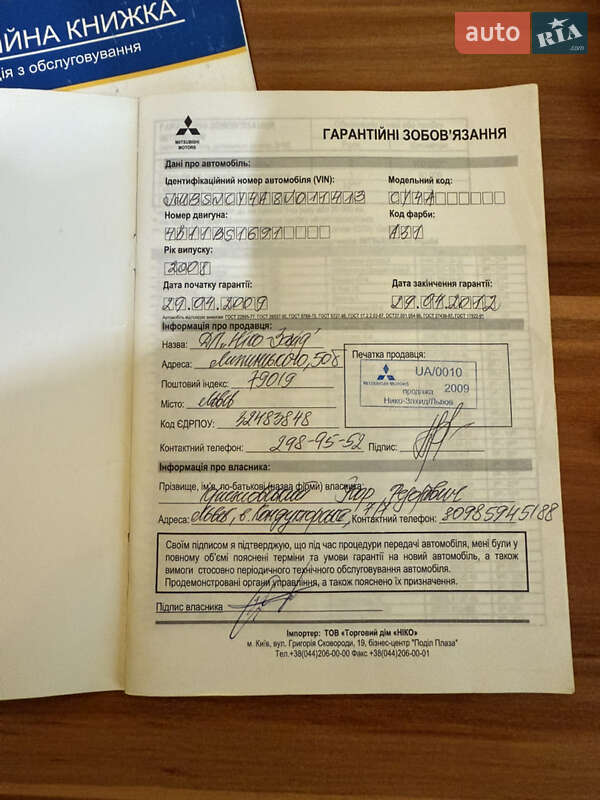 ЙНА КНИЖКА
ія з обслуговування
auto RIA.com
MITSUBISHI MOTORS
ГАРАНТІЙНІ ЗОБОВ'ЯЗАННЯ
Дані про автомобіль:
Ідентифікаційний номер автомобіля (VIN): Модельний код:
CY4A
Номер двигуна: Код фарби:
4B11BS1691 A31
Рік випуску:
2008
Дата початку гарантії: Дата закінчення гарантії:
29.04.2009 29.04.2012
Інформація про продавця:
Назва: ДП "Ніко Захід"
Адреса: Липинського, 50б
Поштовий індекс: 79019
Місто: Львів
Код ЄДРПОУ: 32483848
Контактний телефон: 298-95-52 Підпис:
Печатка продавця:
MITSUBISHI MOTORS
UA/0010
продажа 2009
Нико-Захид/Львов
Інформація про власника:
Прізвище, ім'я, по-батькові (назва фірми) власника:
Адреса: Львів, в. Кондукторська, Контактний телефон: 80985945188
Своїм підписом я підтверджую, що під час процедури передачі автомобіля, мені були у
повному об'ємі пояснені терміни та умови гарантії на новий автомобіль, а також
вимоги стосовно періодичного технічного обслуговування автомобіля.
Продемонстровані органи управління, а також пояснено їх призначення.
Підпис власника
Імпортер: ТОВ «Торговий дім «НІКО»
м. Київ, вул. Григорія Сковороди, 19, бізнес-центр "Поділ Плаза"
Тел.+38(044)206-00-00 Факс +38(044)206-00-01